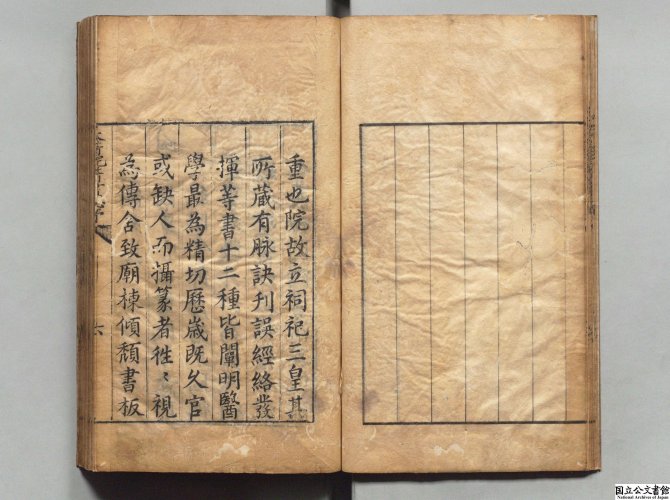 重也院故立祠祀三皇其
所藏有脉訣刋誤經絡發
揮等書十二種皆闡明醫
學最為精切歷歳既乆官
或缺人而攝篆者徃〻視
為傳舍致廟棟傾頹書板
六
国立公文書館
National Archives of Japan